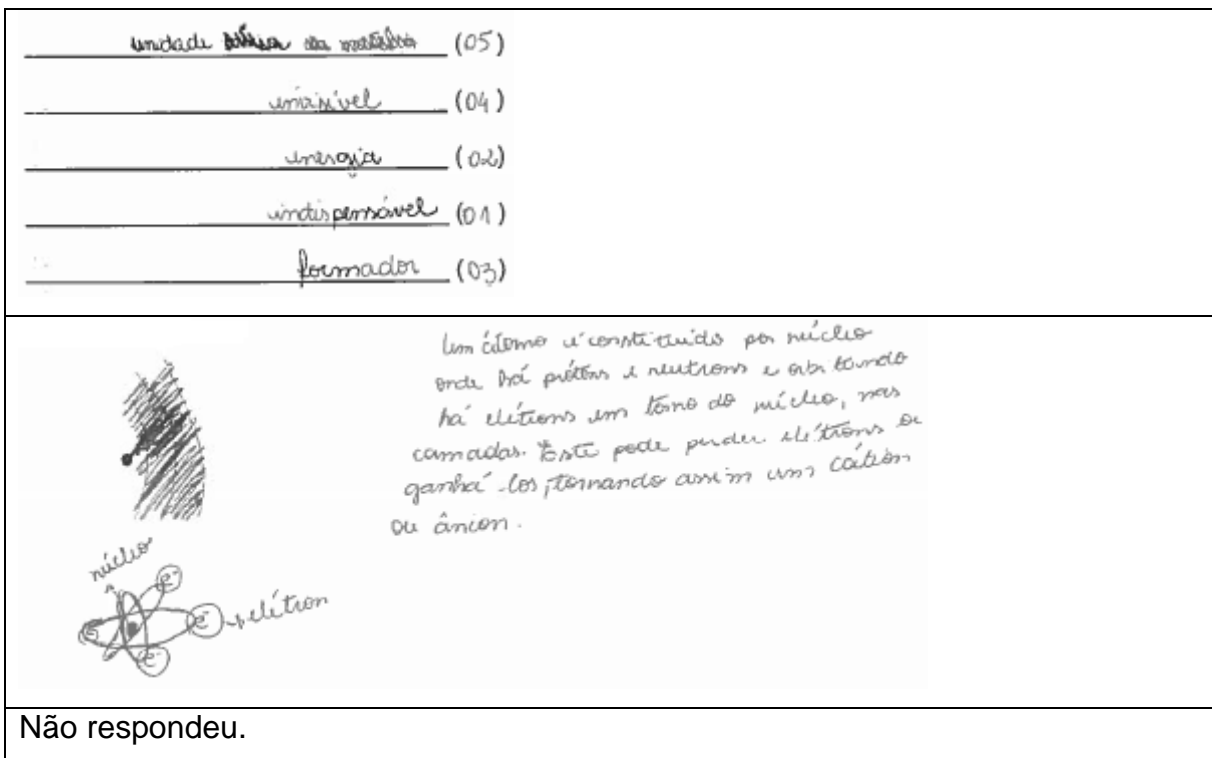 unidade básica da matéria (05)
invisível (04)
energia (02)
indispensável (01)
formador (03)
Um átomo é constituído por núcleo
onde há prótons e neutrons e orbitando
há elétrons em torno do núcleo, nas
camadas. Este pode perder elétrons ou
ganhá-los, tornando assim um cátion
ou ânion.
núcleo
e-
e-
e-
elétron
Não respondeu.